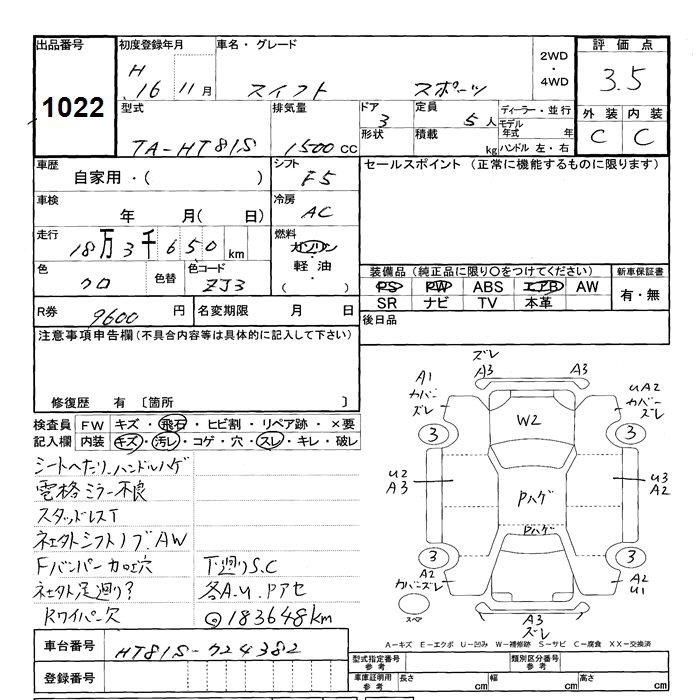 出品番号 初度登録年月 車名・グレード 2WD・4WD 評価点
1022 H 16 11月 スイフト スポーツ 3.5
外装 内装
C C
型式 排気量 ドア 定員 ディーラー・並行
TA-HT81S 1500 CC 3 5人 モデル年式 年
形状 積載 kg ハンドル 左・右
車歴 シフト セールスポイント (正常に機能するものに限ります)
自家用・( ) F5
車検 冷房
年 月( 日) AC
走行 燃料
18万3千650km ガソリン・軽油・( )
色 色替 色コード
クロ ZJ3
装備品 (純正品に限り○をつけてください) 新車保証書
PS PW ABS エアB AW 有・無
SR ナビ TV 本革
R券 9600円 名変期限 月 日 後日品
注意事項申告欄(不具合内容等は具体的に記入して下さい)
修復歴 有 〔箇所 〕
検査員 FW キズ・飛石・ヒビ割・リペア跡・×要
記入欄 内装 キズ・汚レ・コゲ・穴・スレ・キレ・破レ
シートヘタリ.ハンドルハゲ
電格ミラー不良
スタッドレスT
社外シフトノブ.AW
Fバンパーカロエ穴 下廻りS.C
社外足廻り? 各A.U.Pアセ
Rワイパー欠 ◎183648km
ズレ
A3 A3
A1 カバーズレ UA2 カバーズレ
W2
3 3
U2 A3 U3 A2
Pハゲ
Pハゲ
3 3
A2 カバーズレ A2 U1
スペア
A3
ズレ
A-キズ E-エクボ U-凹み W-補修跡 S-サビ C-腐食 XX-交換済
車台番号 HT81S-724382
型式指定番号 参考 類別区分番号 参考
登録番号
車庫証明用 参考 長さ cm 幅 cm 高さ cm